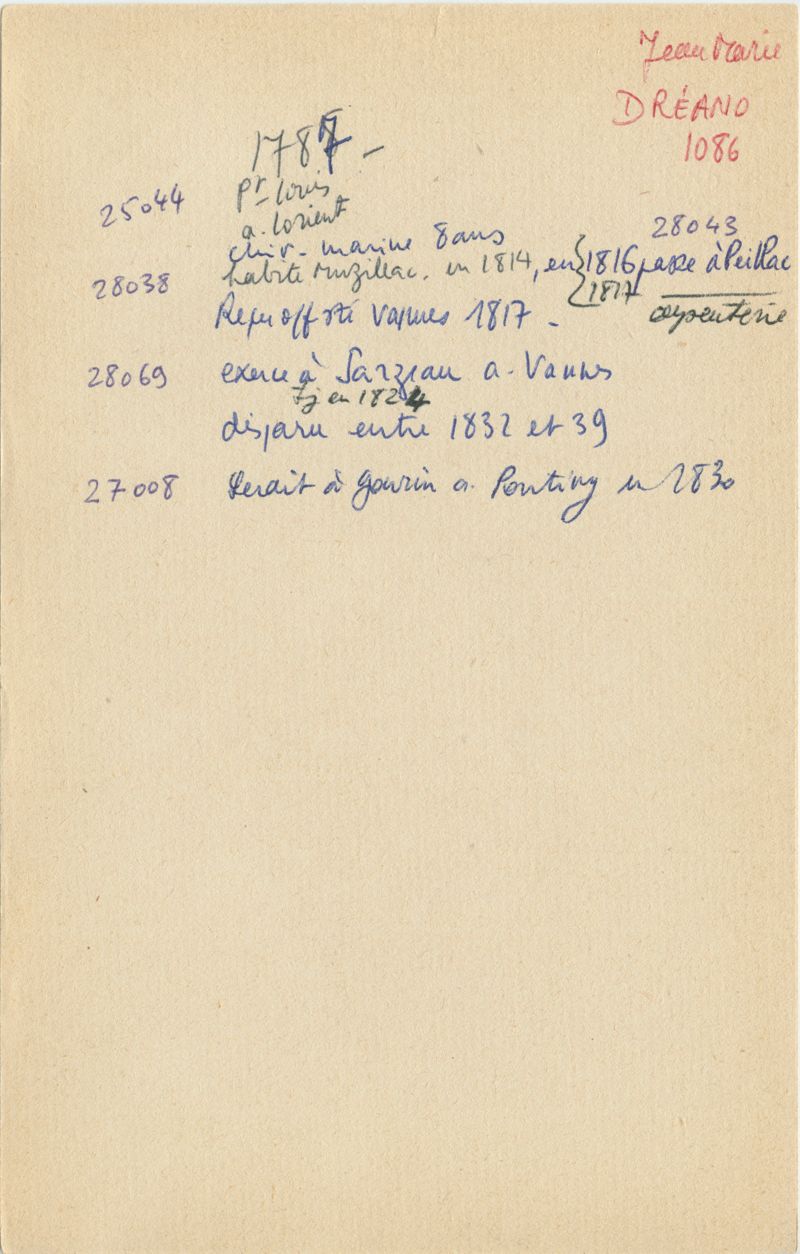 Jean Marie
DRÉANO
1086
1787 -
25044 Pt Louis
a. Lorient
chir. marine 8 ans
28043
28038 habite Muzillac. en 1814, en 1816 passe à Peillac
1817
Reçu off sté Vannes 1817 -
28069 exerce à Sarzeau a. Vannes
Tj en 1824
disparu entre 1832 et 39
27008 Serait à Gourin a. Pontivy en 1830